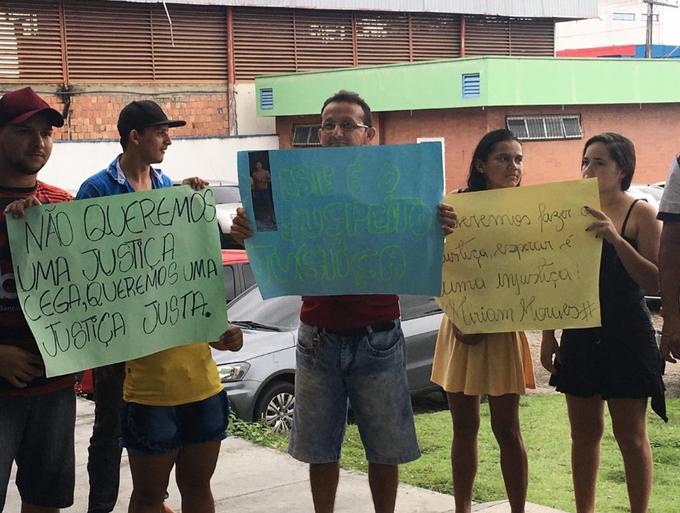 NÃO QUEREMOS
UMA JUSTIÇA
CEGA, QUEREMOS UMA
JUSTIÇA JUSTA.
ESTE É O
SUSPEITO
JUSTIÇA
Devemos fazer a
justiça, esperar é
uma injustiça!
#Miriam Moraes#